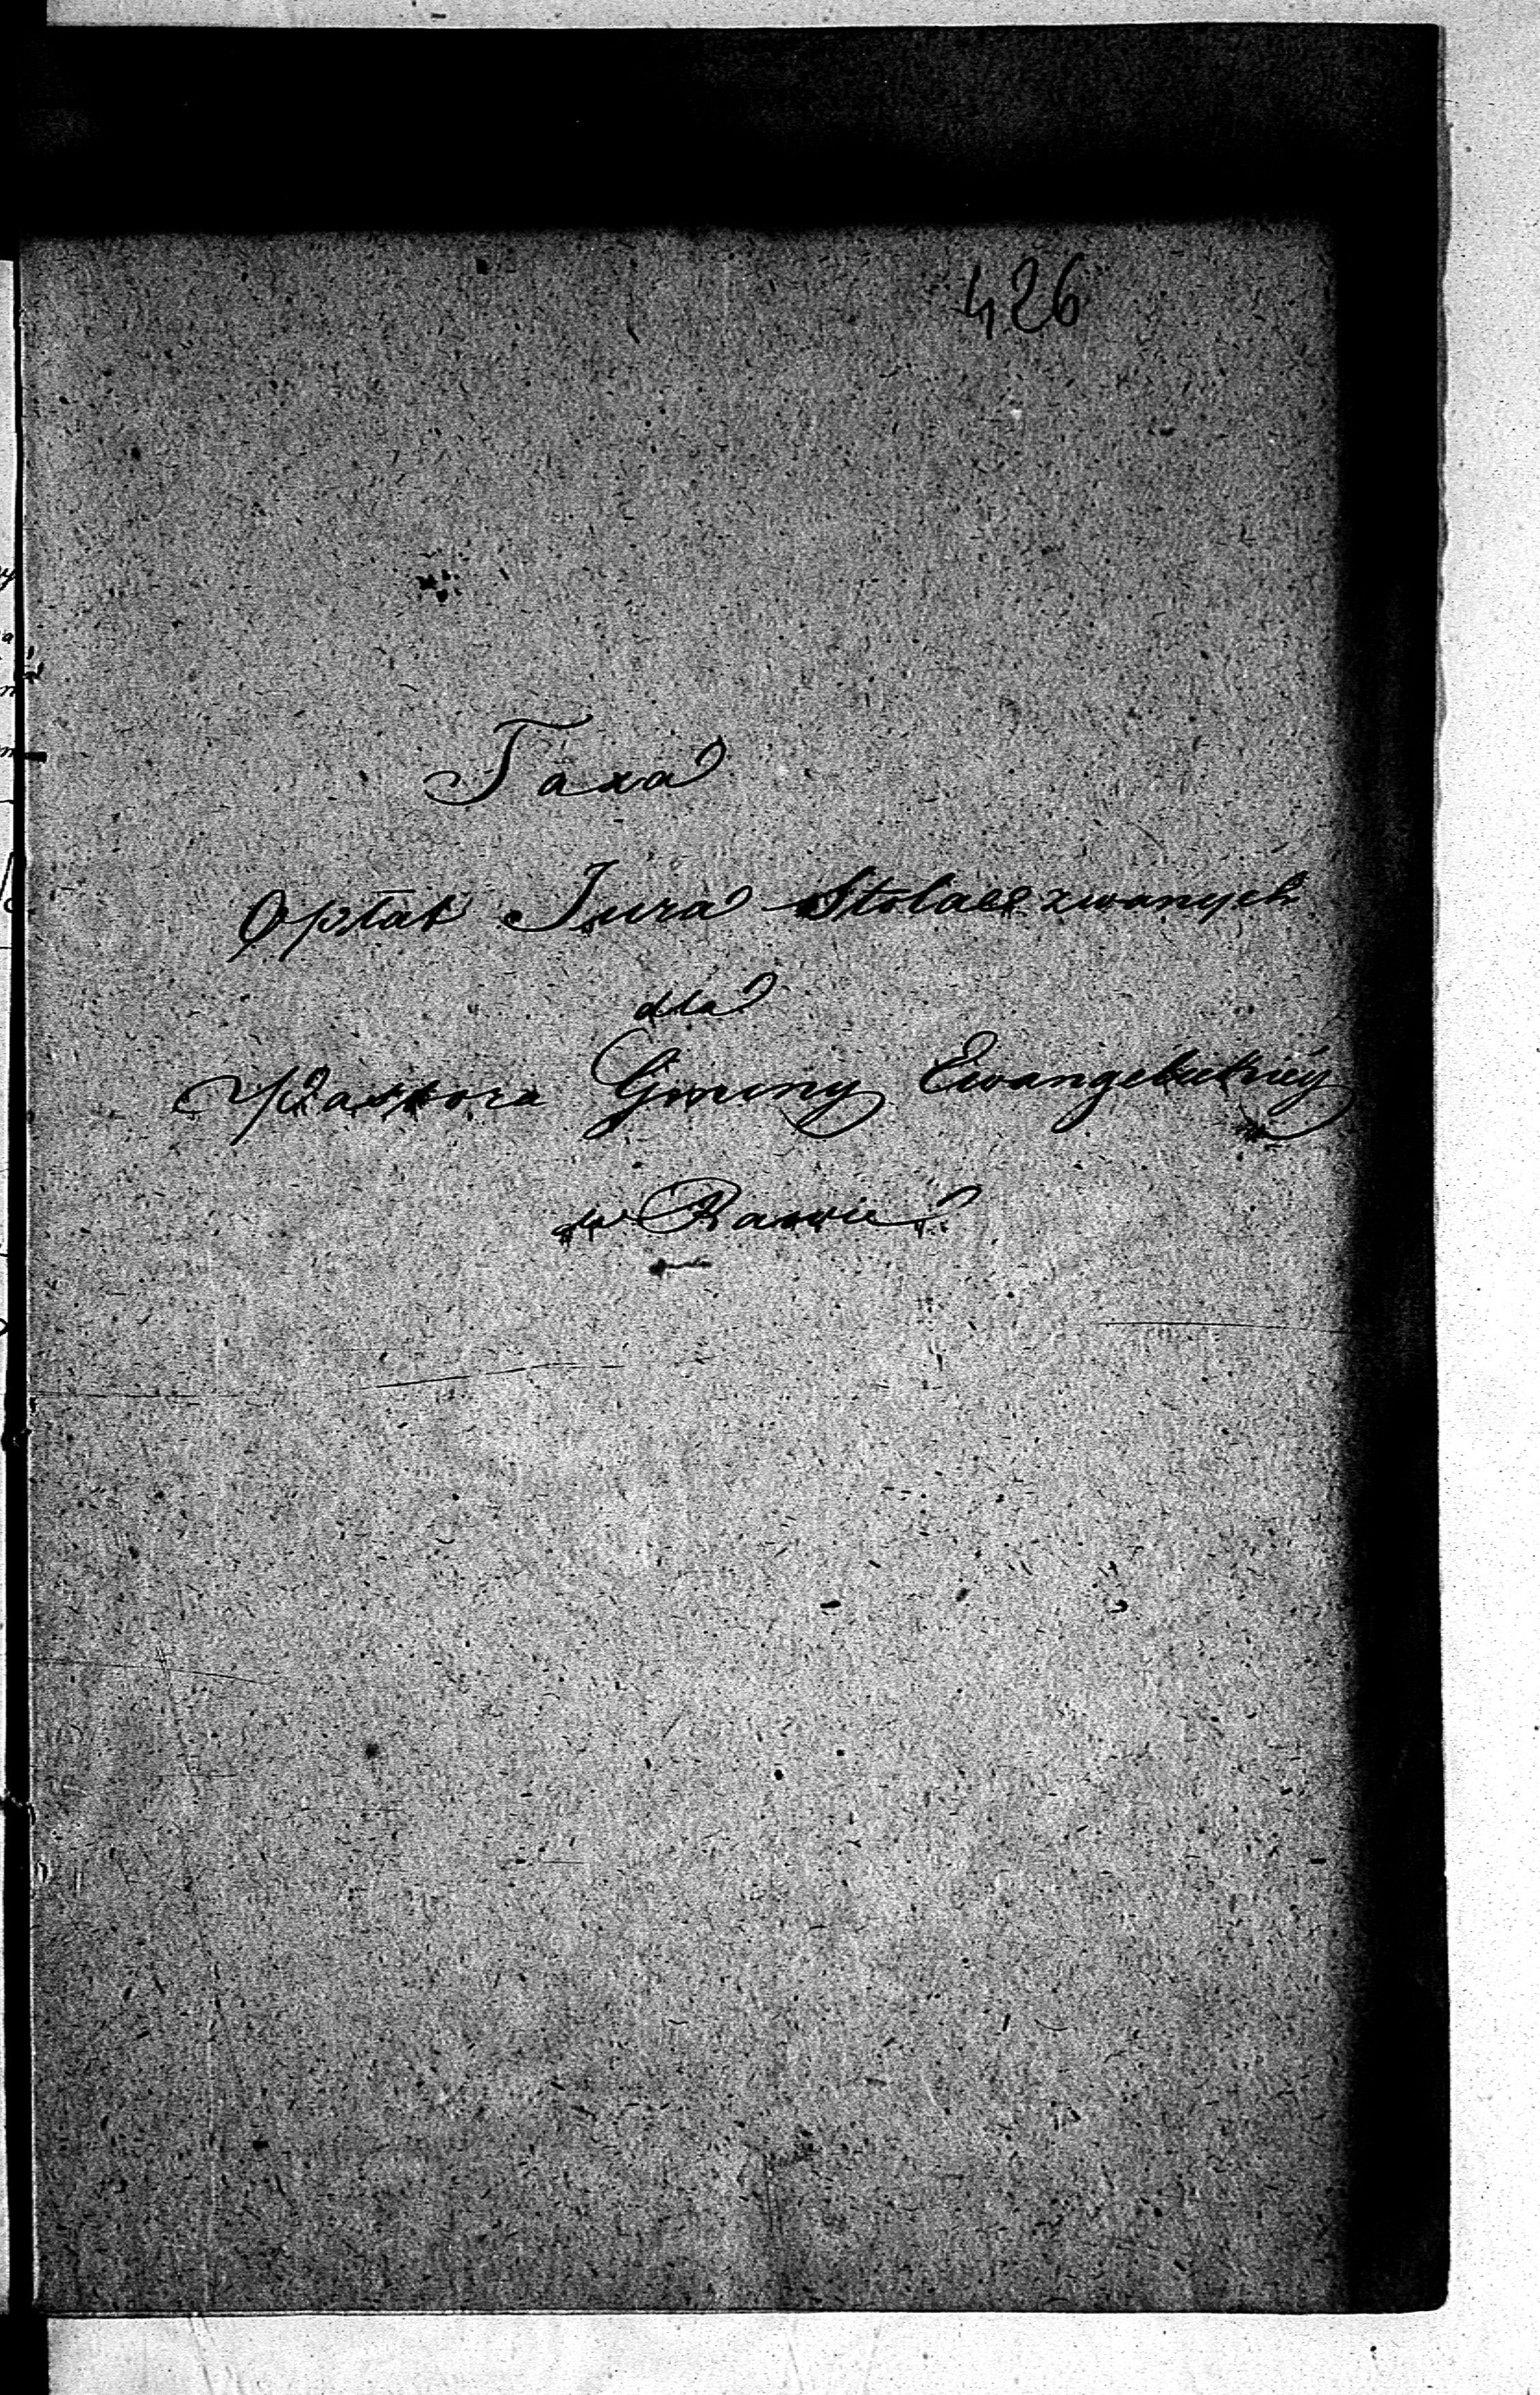 426
Taxa
Opłat Jura Stolae zwanych
dla
Pastora Gminy Ewangelickiéy
w Rawie